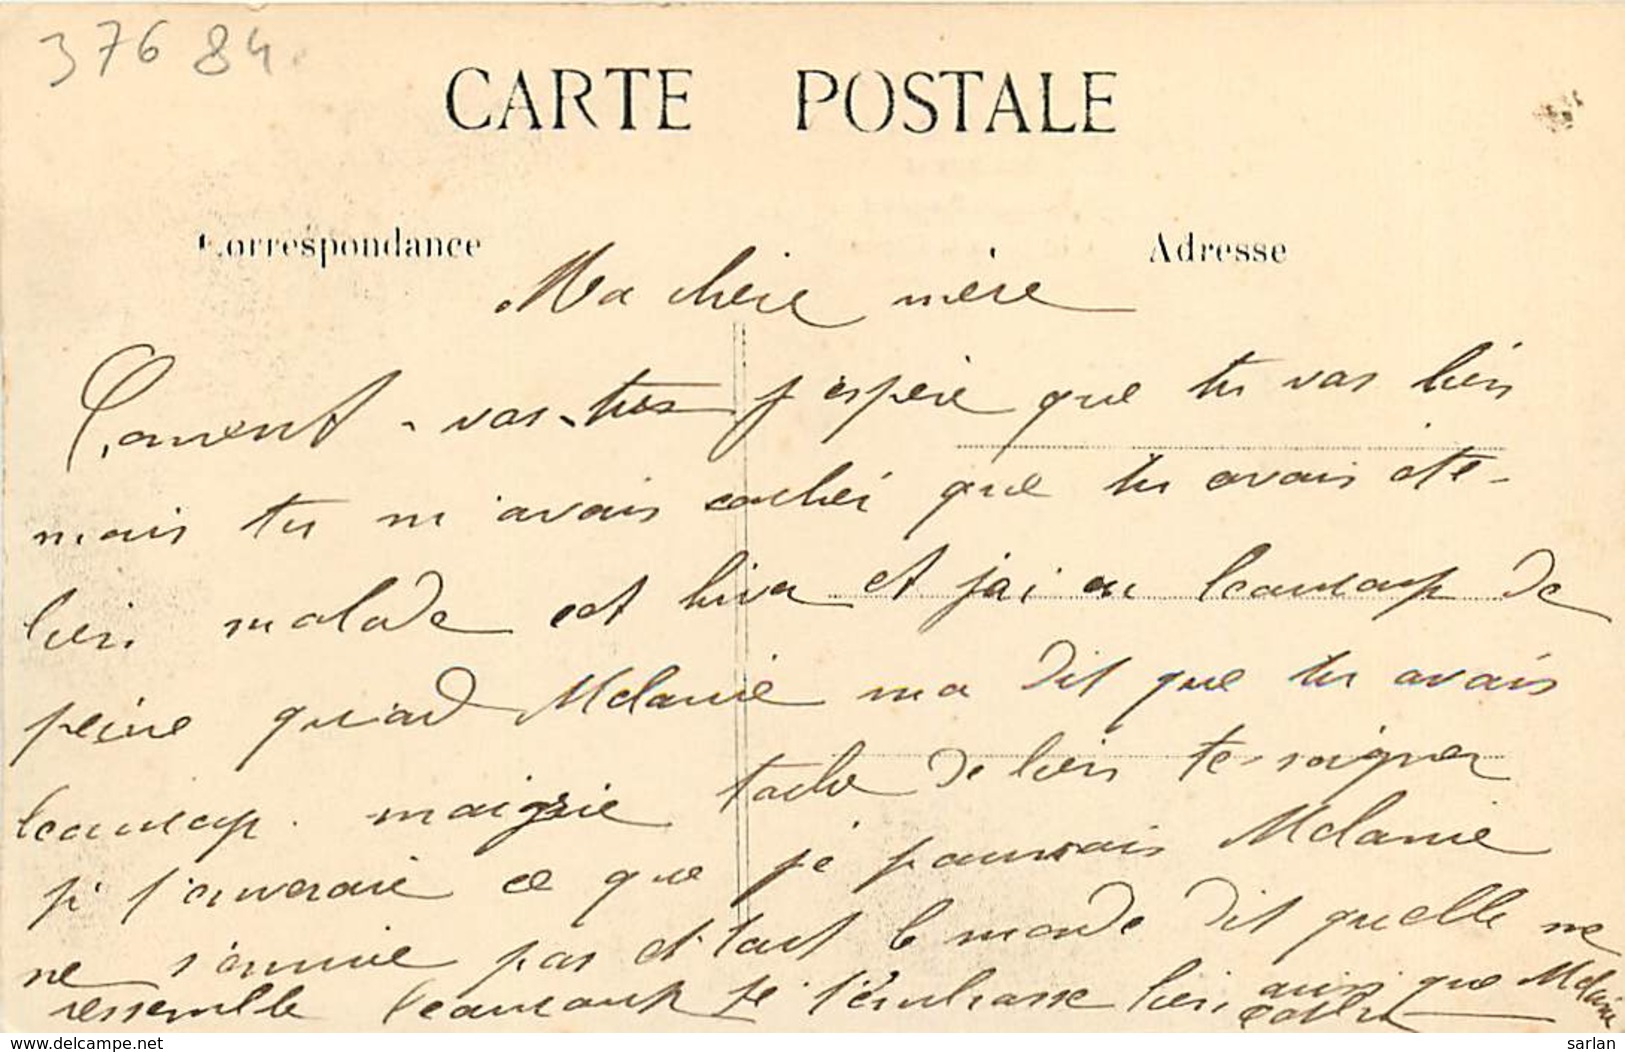 37684
CARTE POSTALE
Correspondance
Adresse
Ma chère mère
Coment-vas-tues j'espère que tu vas bien
mais tu m'avais cacher que tu avais éte-
bien malade cet hiver et j'ai eu beaucoup de
peine quand Mélanie ma dit que tu avais
beaucoup. maigrie tache de bien te soigner
je t'enveraie ce que je pourrais Mélanie
ne s'ennuie pas et tout le monde dit quelle me
ressemble beaucoup je t'embrasse bien ainsi que Mélanie
delcampe.net
sarlan